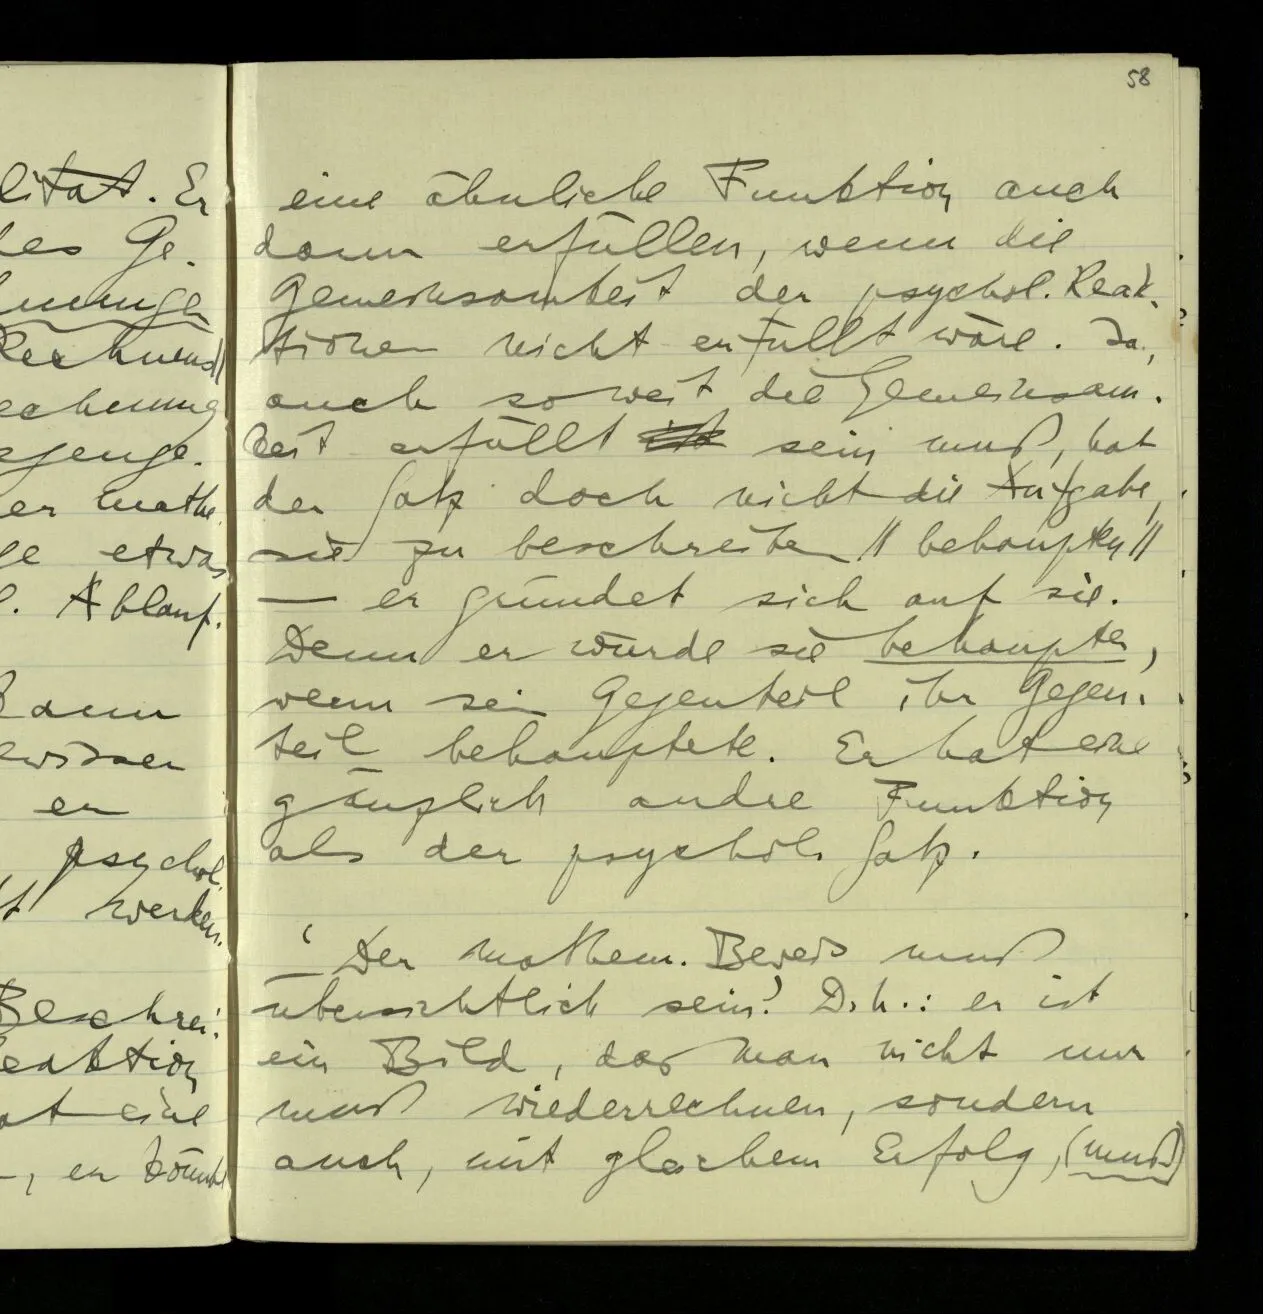 litat. Er
es Ge-
nunge
Rechnens//
echnung
sgenge-
er mathe
ge etwas
l. Ablauf.
dann
ewisser
er
psychol.
t werden.
Beschrei-
eaktion
at eine
–, er könnte
58
eine ähnliche Funktion auch
dann erfüllen, wenn die
Gemeinsamkeit der psychol. Reak-
tionen nicht erfüllt wäre. Ja,
auch soweit die Gemeinsam-
keit erfüllt ist sein muß, hat
der Satz doch nicht die Aufgabe,
sie zu beschreiben // behaupten //
— er gründet sich auf sie.
Denn er würde sie behaupten,
wenn sein Gegenteil ihr Gegen-
teil behauptete. Er hat eine
gänzlich andre Funktion
als der psychol. Satz.
‘Der mathem. Beweis muß
übersichtlich sein’. D.h.: er ist
ein Bild, das man nicht nur
muß wiederrechnen, sondern
auch, mit gleichem Erfolg, (muß)